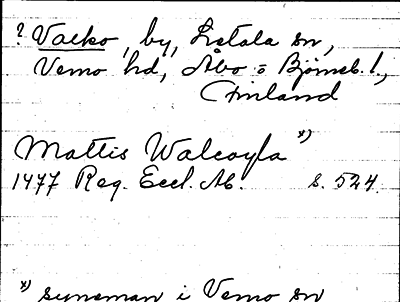 ? Valko, by, Letala sn,
Vemo hd, Åbo o Björneb. l.,
Finland
Mattis Walcoyla x)
1477 Reg. Eccl. Ab. s. 524
x) syneman i Vemo sn